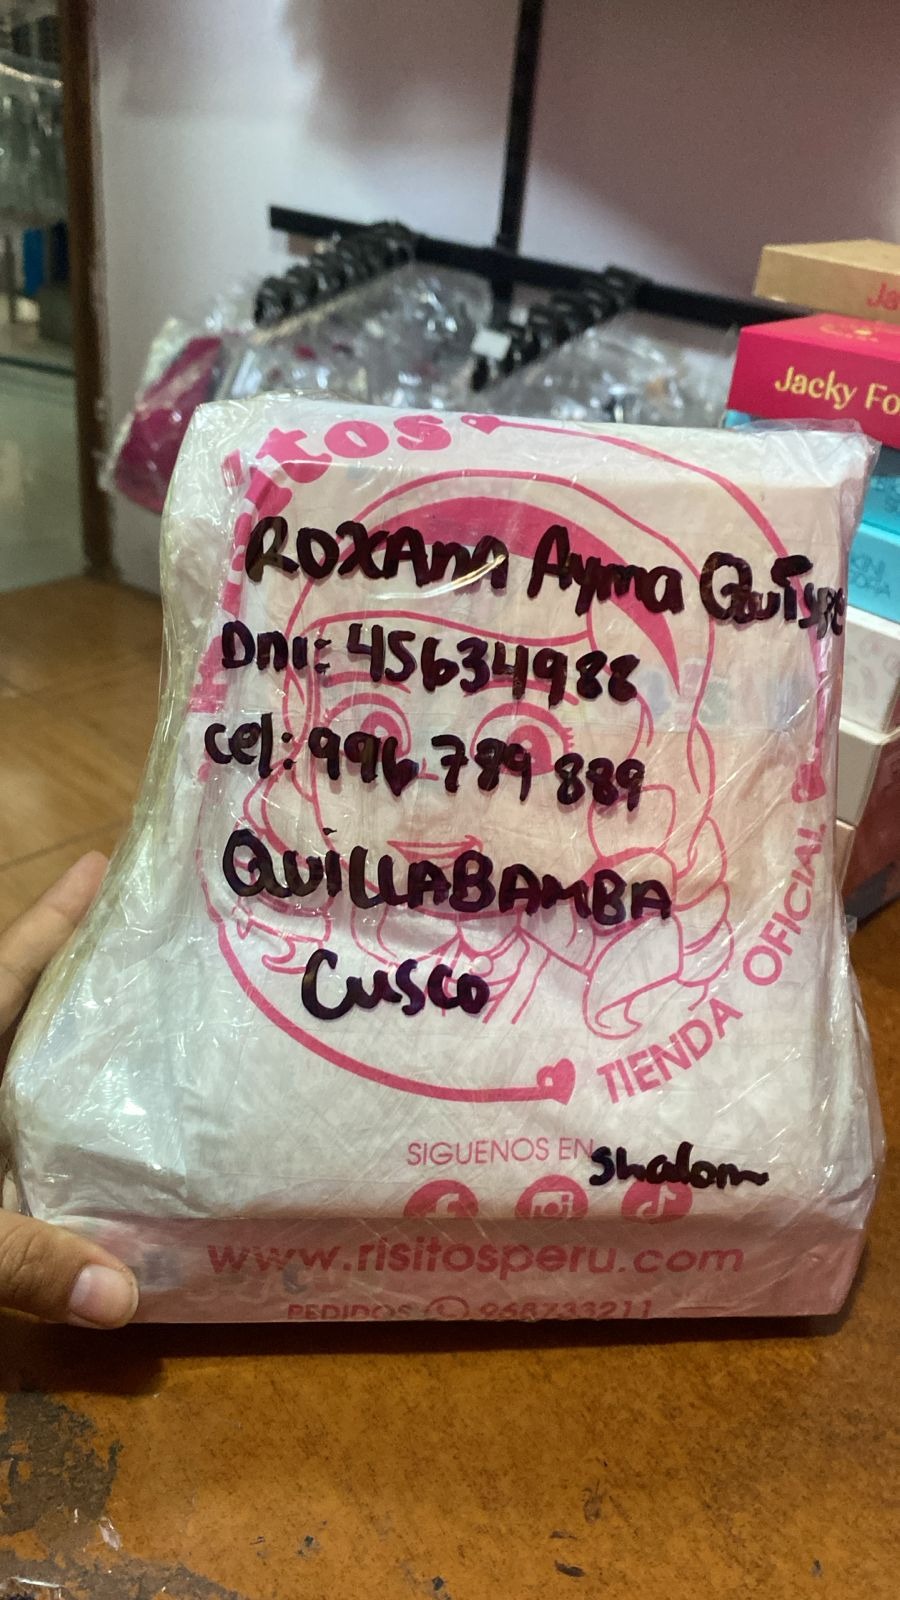 itos
ROXAnA Ayma Quispe
Dni: 45634988
cel: 996 789 889
QUILLABAMBA
Cusco
TIENDA OFICIAL
SIGUENOS EN
Shalom
www.risitosperu.com
PEDIDOS 968733211
Jacky Fo